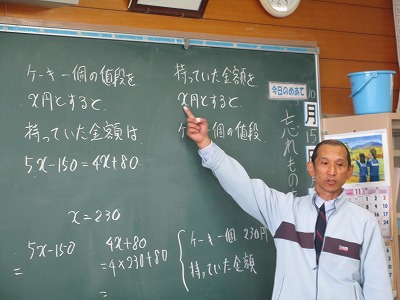 ケーキ一個の値段を
x円とすると
持っていた金額は
5x-150=4x+80
x=230
5x-150
=
4x+80
=4×230+80
=
持っていた金額を
x円とすると
ケーキ一個の値段
ケーキ一個 230円
持っていた金額
今日のめあて
忘れもの
10
月
15
11